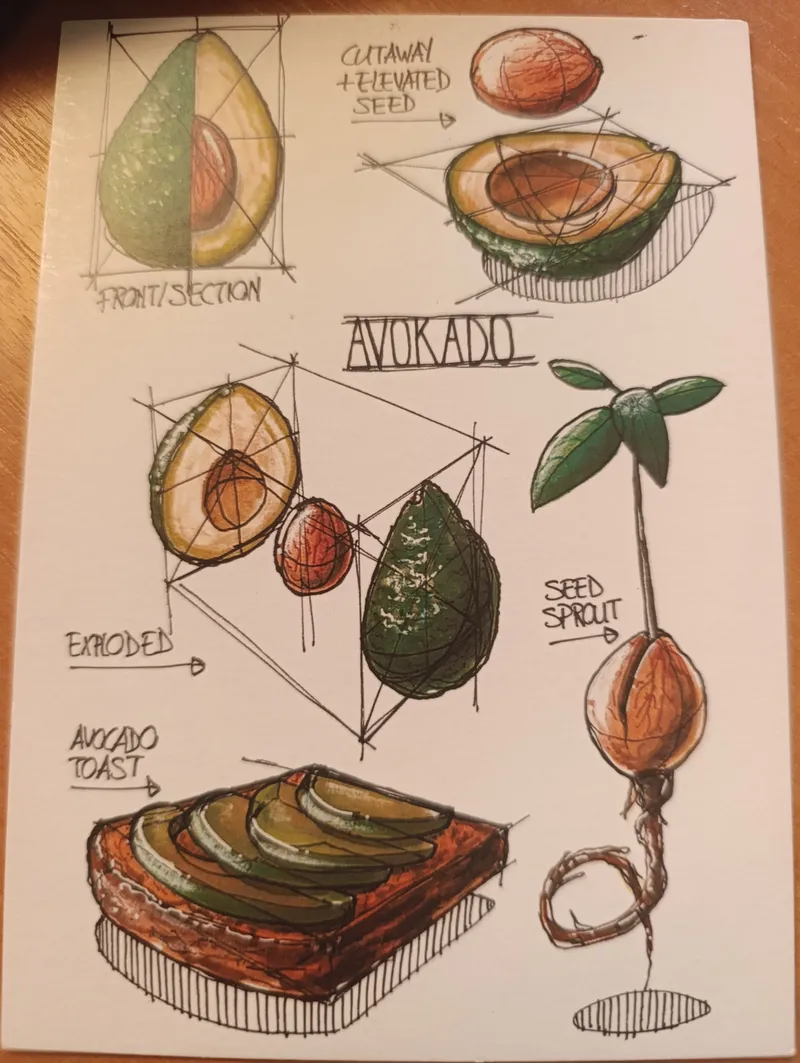 CUTAWAY
+ELEVATED
SEED
FRONT/SECTION
AVOKADO
SEED
SPROUT
EXPLODED
AVOCADO
TOAST